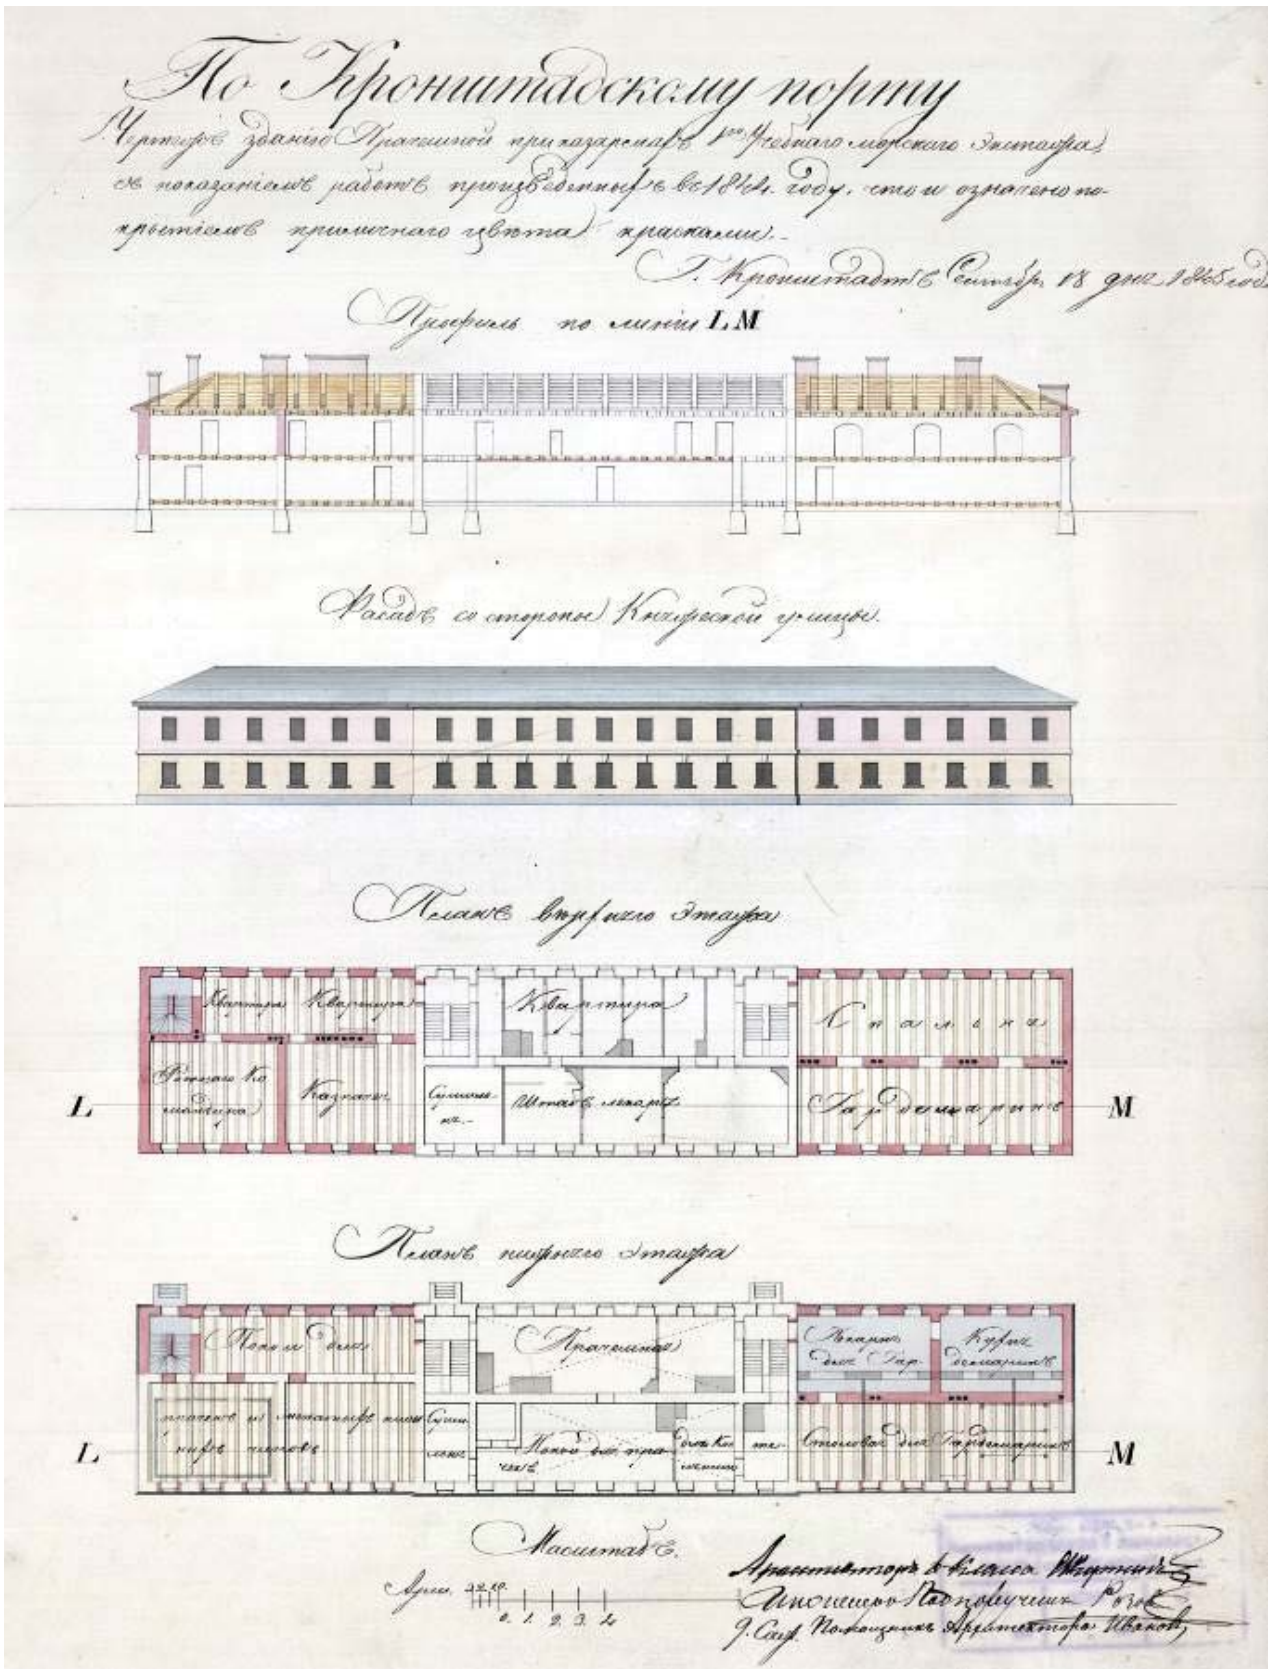 По Кронштадскому порту
Чертежъ зданію Прачешной при казармахъ 1го Учебнаго морскаго Экипажа,
съ показаніемъ работъ произведенныхъ въ году, что и означено по-
крытіемъ приличнаго цвѣта красками.
Г. Кронштадтъ Сентября 18 дня года
Профиль по линіи L M
Фасадъ со стороны улицы.
Планъ верхняго этажа
Квартира Квартира
Квартира
Спальня
Ротнаго Ко
мандира
Казначея
Сушиль
ня.
Штабъ лекаря
Гардемаринъ
L
M
Планъ нижняго этажа
Покои для
Прачешная
Пекарня
для Гар
Кухня
демаринъ
Покой для пра
чекъ
Столовая для Гардемаринъ
L
M
Масштабъ.
Арш.
0. 1. 2. 3. 4
Архитекторъ класса
Инженеръ Подпоручикъ
Помощникъ Архитектора Ивановъ